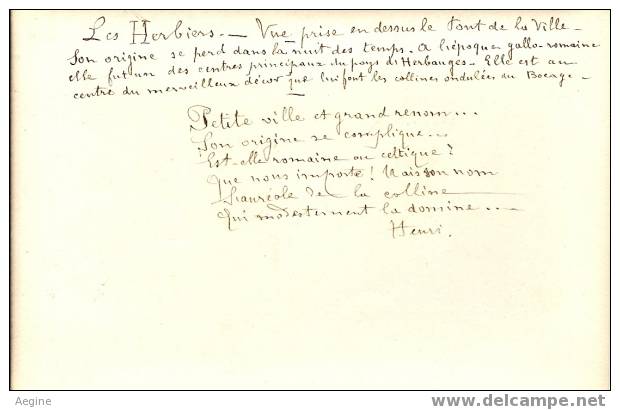 Les Herbiers. — Vue prise en dessus le Pont de la Ville —
Son origine se perd dans la nuit des temps. A l'époque gallo-romaine
elle fut un des centres principaux du pays d'Herbauges. Elle est au
centre du merveilleux décor que lui font les collines ondulées du Bocage —
Petite ville et grand renom...
Son origine se complique...
Est-elle romaine ou celtique ?
Que nous importe ! Mais son nom
L'auréole de la colline
Qui modestement la domine...
Henri.
Aegine
www.delcampe.net